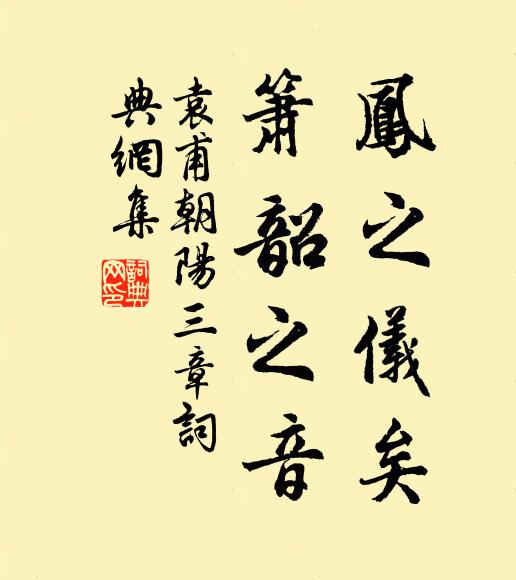 鳳之儀矣
簫韶之音
袁甫朝陽三章詞
典網集
詞典
网印